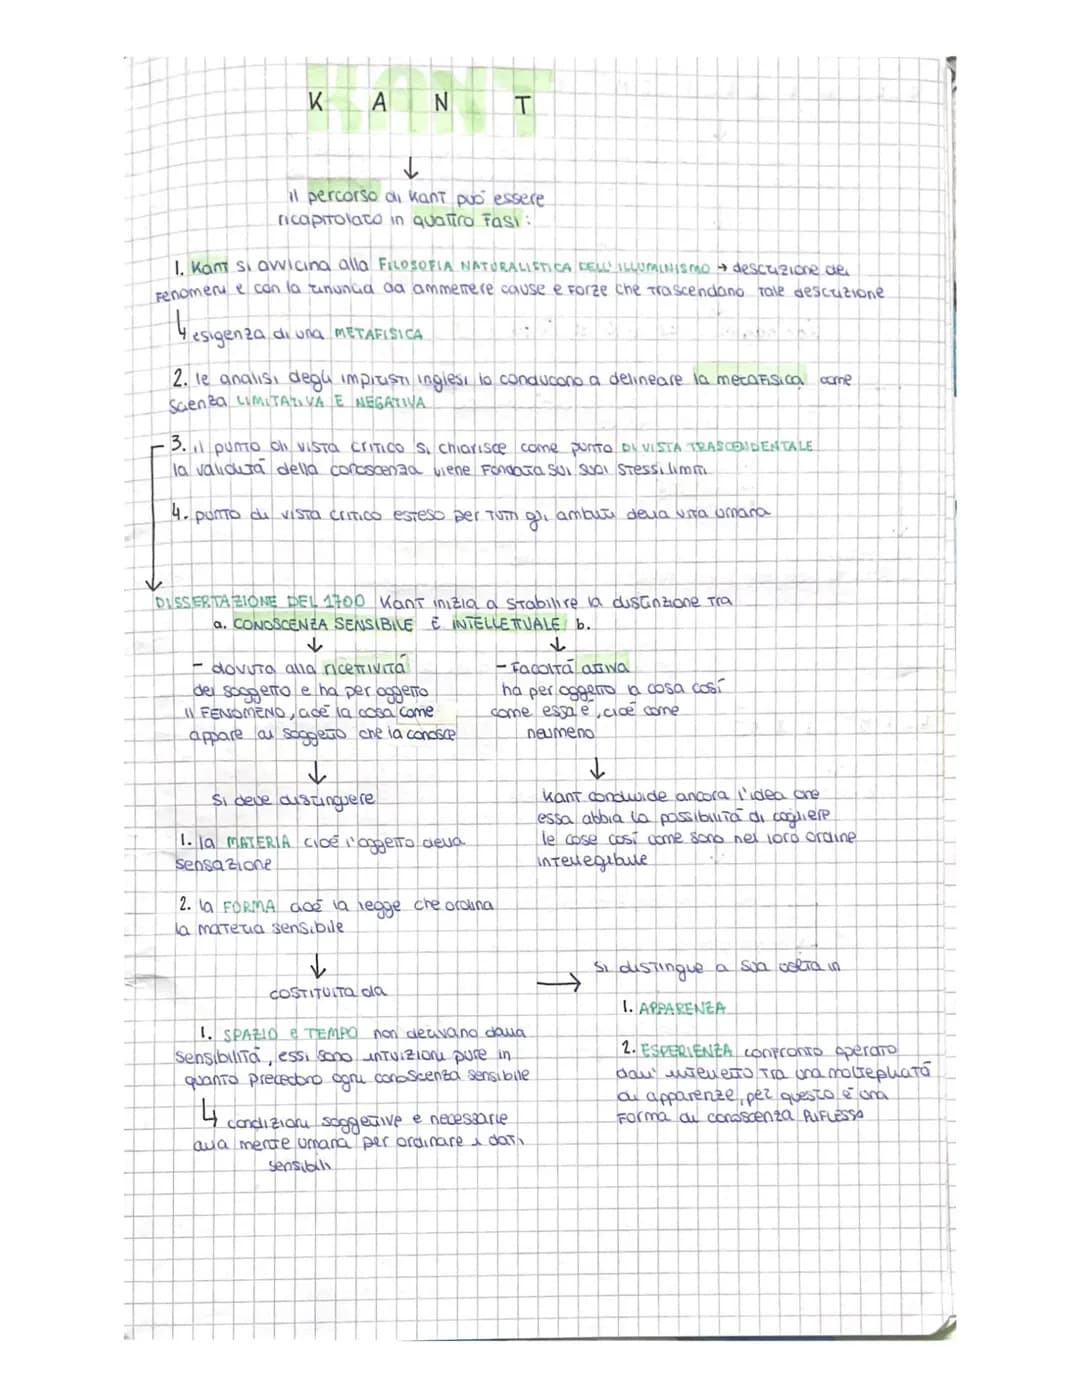 K A N T
il percorso di Kant può essere
ricapitolato in quattro fasi:
1. Kant si avvicina alla FILOSOFIA NATURALISTICA DELL'ILLUMINISMO → descrizione dei
fenomeni e con la rinuncia da ammettere cause e forze che trascendano tale descrizione
↳ esigenza di una METAFISICA
2. le analisi degli impiristi inglesi lo conducono a delineare la metafisica come
scienza LIMITATIVA E NEGATIVA
3. il punto di vista critico si chiarisce come punto DI VISTA TRASCENDENTALE
la validità della conoscenza viene fondata sui suoi stessi limiti
4. punto di vista critico esteso per tutti gli ambiti della vita umana
DISSERTAZIONE DEL 1700 Kant inizia a stabilire la distinzione tra
a. CONOSCENZA SENSIBILE E INTELLETTUALE b.
- dovuta alla ricettività
del soggetto e ha per oggetto
il FENOMENO, cioè la cosa come
appare al soggetto che la conosce
- Facoltà attiva
ha per oggetto la cosa così
come essa è, cioè come
neumeno
Si deve distinguere
1. la MATERIA cioè l'oggetto della
sensazione
2. la FORMA cioè la legge che ordina
la materia sensibile
Kant condivide ancora l'idea che
essa abbia la possibilità di cogliere
le cose così come sono nel loro ordine
intellegibile
COSTITUITA da
1. SPAZIO e TEMPO non derivano dalla
sensibilità, essi sono intuizioni pure in
quanto precedono ogni conoscenza sensibile
↳ condizioni soggettive e necessarie
alla mente umana per ordinare i dati
sensibili
→ Si distingue a sua volta in
1. APPARENZA
2. ESPERIENZA confronto operato
dall'intelletto tra una molteplicità
di apparenze, per questo è una
forma di conoscenza RIFLESSA